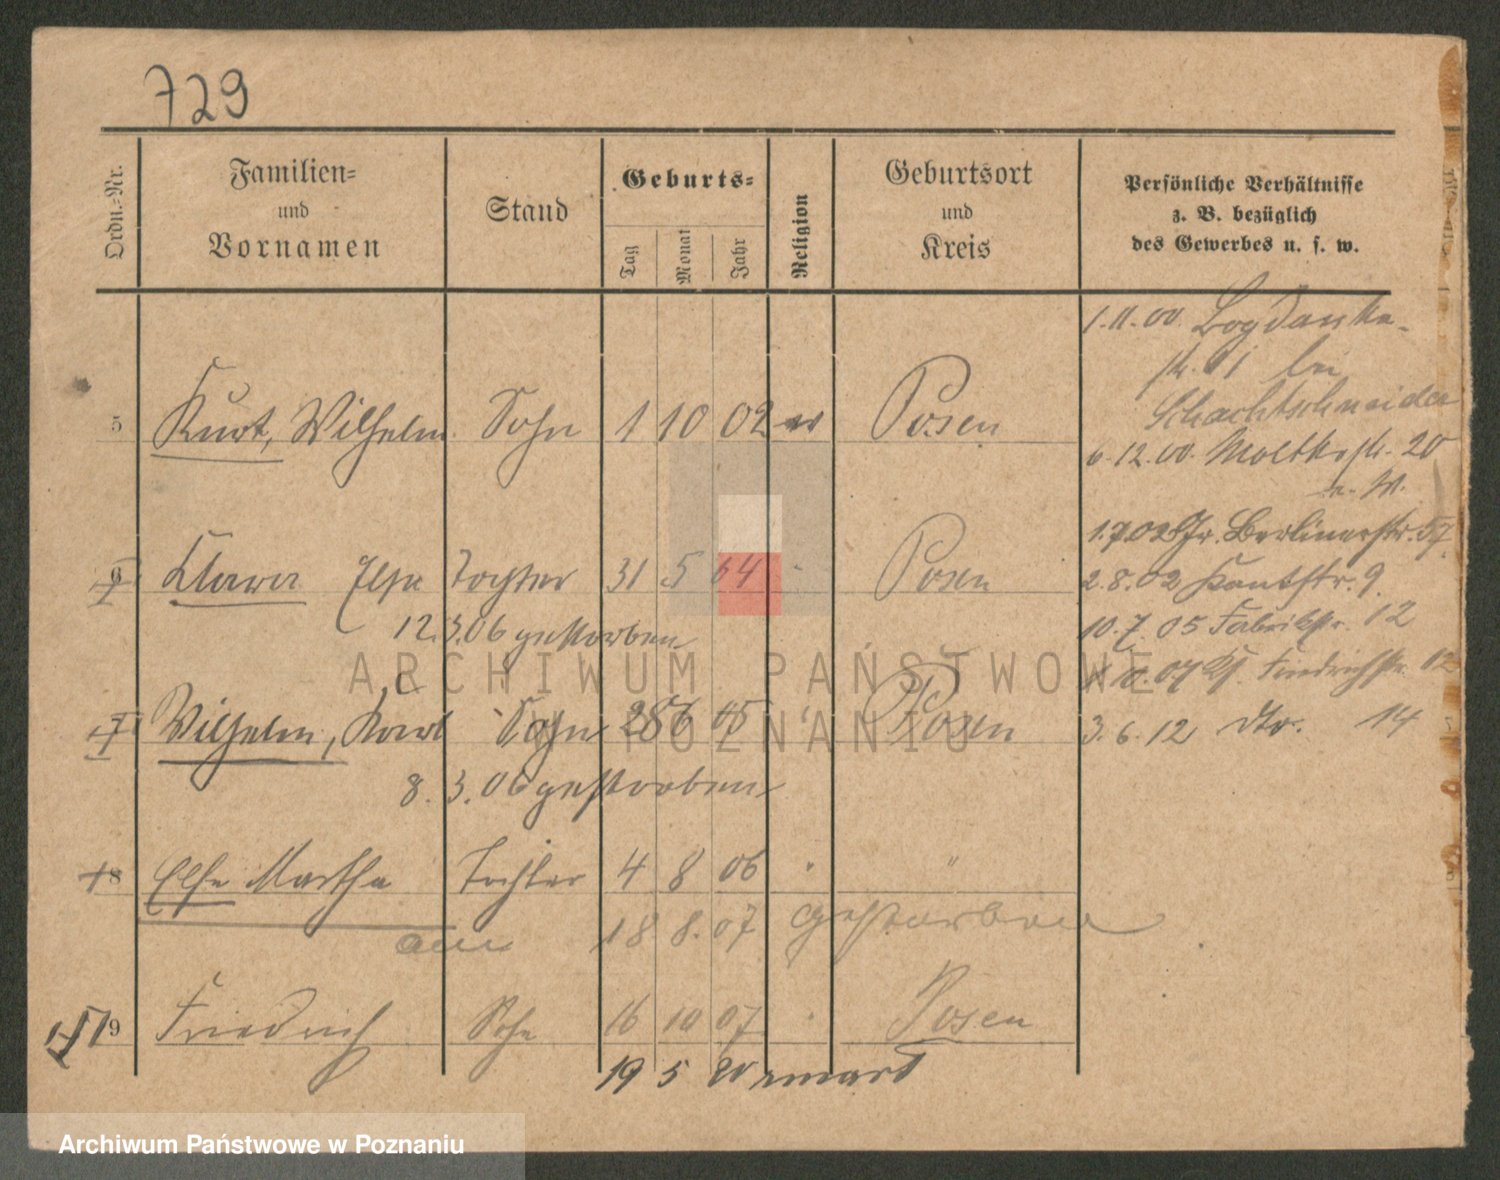 729
Ordn.-Nr.
Familien-
und
Vornamen
Stand
Geburts-
Tag
Monat
Jahr
Religion
Geburtsort
und
Kreis
Persönliche Verhältnisse
z. B. bezüglich
des Gewerbes u. s. w.
1.11.00. Bogdanka-
str. 1 bei
Schachtschneider
5 Kurt, Wilhelm Sohn 1 10 02 ev Posen
6.12.00. Moltkestr. 20
1.7.02 Gr. Berlinerstr. 57
6 Klara Else Tochter 31 5 04 Posen
2.8.02 Kantstr. 9.
12.3.06 gestorben
10.7.05 Fabrikstr. 12
10.07 Friedrichstr. 12
7 Wilhelm, Karl Sohn 28 6 05 Posen
3.6.12 dto. 14
8.3.06 gestorben
8 Else Martha Tochter 4 8 06 "
am 18 8. 07 gestorben
9 Friedrich Sohn 16 10 07 Posen
19 5 20 zmarł
ARCHIWUM PAŃSTWOWE
W POZNANIU
Archiwum Państwowe w Poznaniu